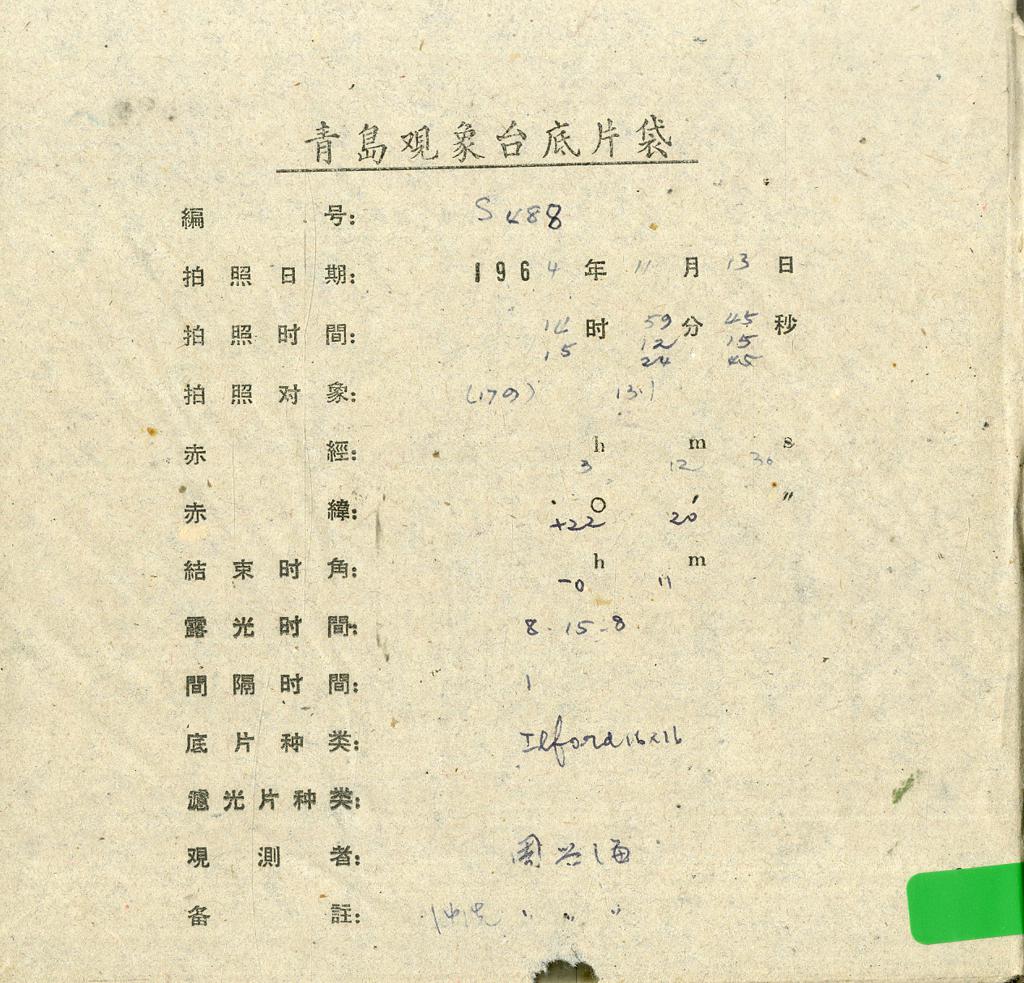 青島观象台底片袋
編号: S 488
拍照日期: 1964年11月13日
拍照时間: 14时59分45秒
15 12 15
24 45
拍照对象: (170) 13.1
赤經: h m s
3 12 30
赤緯: ° ′ ″
+22 20
結束时角: h m
-0 11
露光时間: 8-15-8
間隔时間: 1
底片种类: Ilford 16×16
濾光片种类:
观測者: 周兴海
备註: